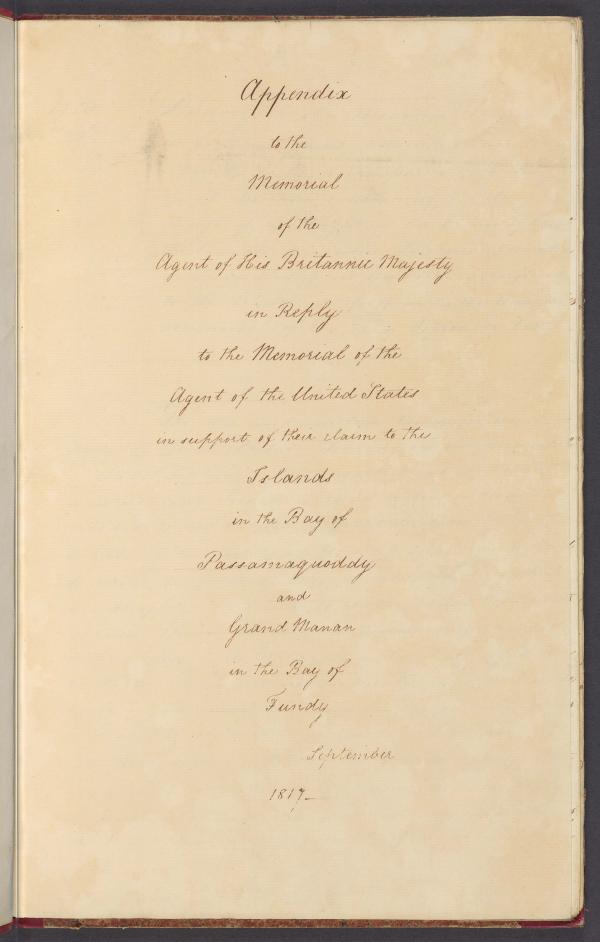 Appendix
to the
Memorial
of the
Agent of His Britannic Majesty
in Reply
to the Memorial of the
Agent of the United States
in support of their claim to the
Islands
in the Bay of
Passamaquoddy
and
Grand Manan
in the Bay of
Fundy
September
1817_